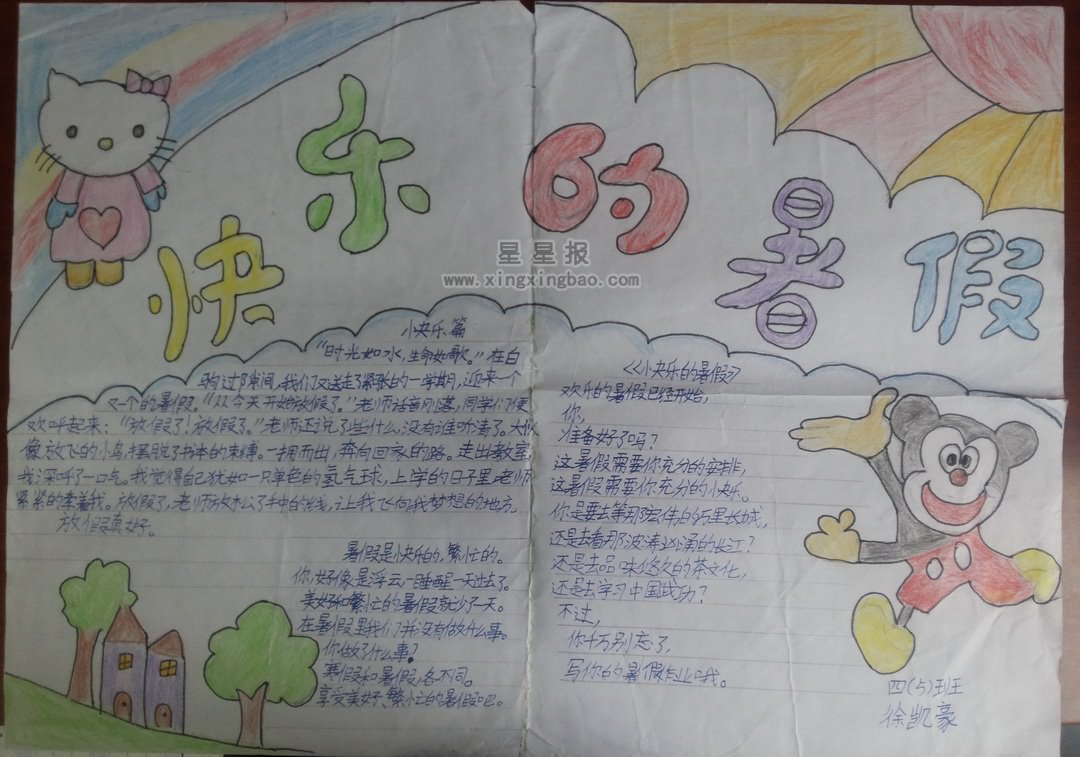 快乐的暑假
星星报
www.xingxingbao.com
小快乐篇
"时光如水,生命如歌。"在白
驹过隙间,我们又送走了紧张的一学期,迎来一个
又一个的暑假。"从今天开始放假了。"老师话音刚落,同学们便
欢呼起来:"放假了!放假了。"老师还说了些什么,没有谁听清了。大伙
像放飞的小鸟,摆脱了书本的束缚。一拥而出,奔向回家的路。走出教室,
我深呼了一口气。我觉得自己犹如一只单色的氢气球,上学的日子里,老师
紧紧的牵着我。放假了,老师放松了手中的线,让我飞向我梦想的地方。
放假真好。
暑假是快乐的,繁忙的。
你,好像是浮云,一睡醒一天过去了。
美好和繁忙的暑假就少了一天。
在暑假里我们并没有做什么事。
你做了什么事?
寒假和暑假,各不同。
享受美好、繁忙的暑假吧。
《小快乐的暑假》
欢乐的暑假已经开始,
你,
准备好了吗?
这暑假需要你充分的安排,
这暑假需要你充分的快乐。
你是要去等那宏伟的万里长城,
还是去看那波涛汹涌的长江?
还是去品味悠久的茶文化,
还是去学习中国武功?
不过,
你千万别忘了,
写你的暑假作业哦。
四(5)班
徐凯豪